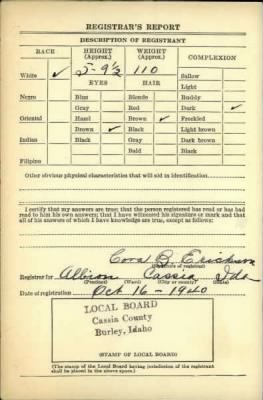 REGISTRAR'S REPORT
DESCRIPTION OF REGISTRANT
RACE HEIGHT (Approx.) WEIGHT (Approx.) COMPLEXION
White ✓ 5-9½ 110 Sallow
EYES HAIR Light
Negro Blue Blonde Ruddy
Gray Red Dark ✓
Oriental Hazel Brown ✓ Freckled
Brown ✓ Black Light brown
Indian Black Gray Dark brown
Bald Black
Filipino
Other obvious physical characteristics that will aid in identification
I certify that my answers are true; that the person registered has read or has had
read to him his own answers; that I have witnessed his signature or mark and that
all of his answers of which I have knowledge are true, except as follows:
Cora B. Erickson
(Signature of registrar)
Registrar for Albion Cassia Ida
(Precinct) (Ward) (City or county) (State)
Date of registration Oct 16 - 1940
LOCAL BOARD
Cassia County
Burley, Idaho
(STAMP OF LOCAL BOARD)
(The stamp of the Local Board having jurisdiction of the registrant
shall be placed in the above space.)